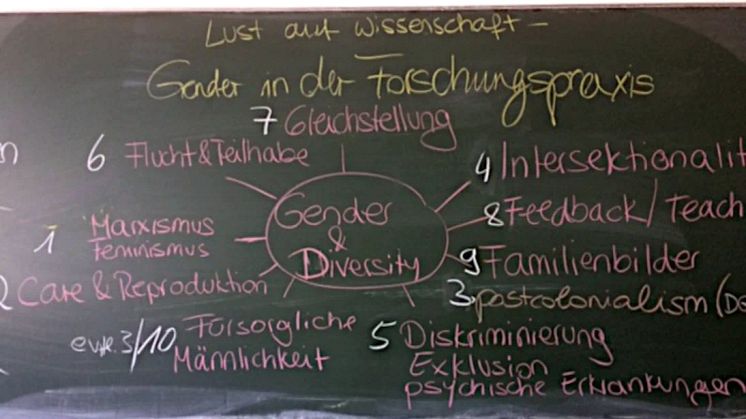 Lust auf Wissenschaft –
Gender in der Forschungspraxis
7 Gleichstellung
6 Flucht & Teilhabe
4 Intersektionalit
Gender
&
Diversity
8 Feedback / Teach
1 Marxismus
Feminismus
9 Familienbilder
2 Care & Reproduktion
3 postcolonialism (De
3/10 Fürsorgliche
Männlichkeit
5 Diskriminierung
Exklusion
psychische Erkrankungen